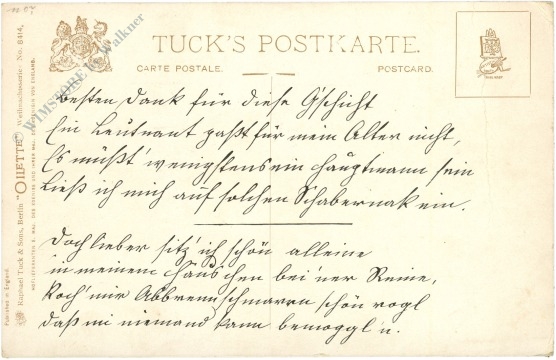 TUCK'S POSTKARTE.
CARTE POSTALE.
POSTCARD.
Besten Dank für diese Gschicht
Ein Leutnant paßt für mein Alter nicht,
Es müßt' wenigstens ein Hauptmann sein
Ließ ich mich auf solchen Schabernak ein.
Doch lieber sitz' ich schön alleine
in meinem Häuschen bei 'ner Reine,
Koch' mir Abbrennschmarrn schön rogl
Daß mi niemand kann bemoggl'n.
Raphael Tuck & Sons, Berlin "OILETTE" Weihnachtsserie No. 8414.
Published in England.
WIMSTORE by Walkner